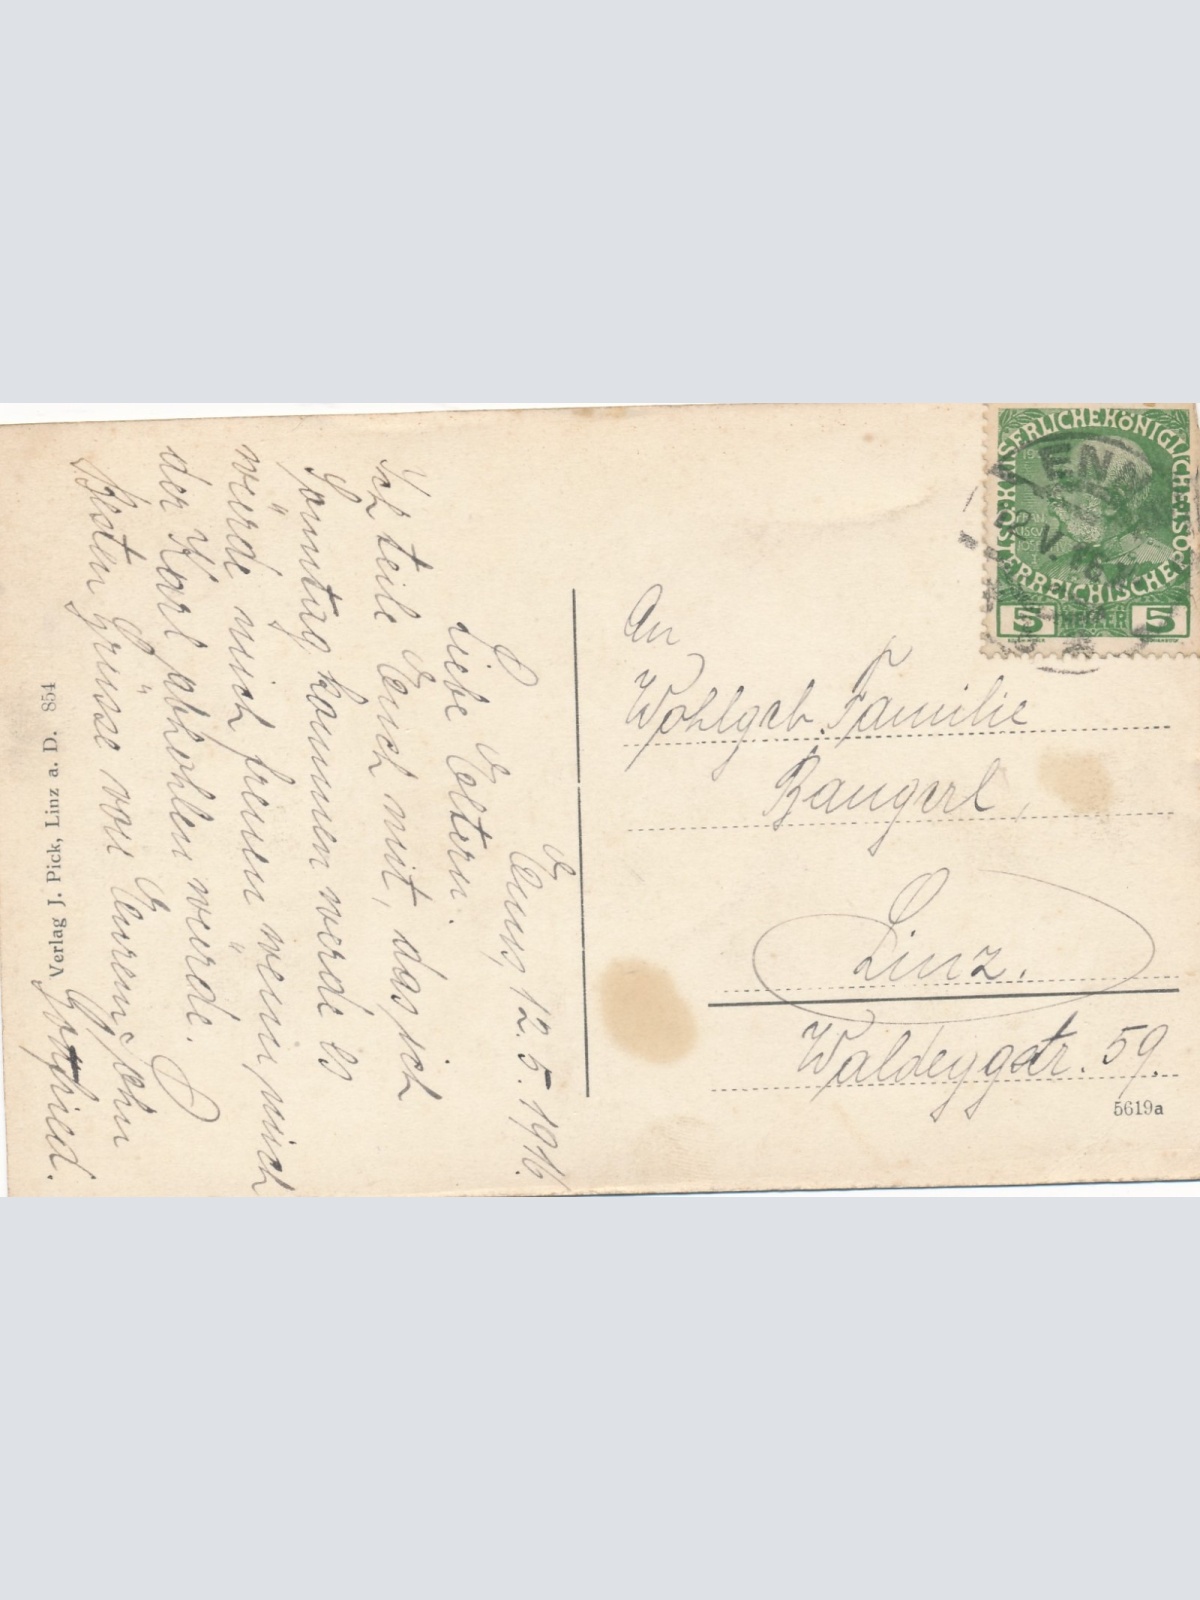 Enns, 12.5.1916.
Liebe Eltern.
Ich teile Euch mit, das ich
Sonntag kommen werde es
würde mich freuen wenn mich
der Karl abhohlen würde.
Besten Grüsse von Eurem Sohn
Gottfried.
Verlag J. Pick, Linz a. D. 854
KAISERLICHE KÖNIGLICHE ÖSTERREICHISCHE POST
5 HELLER 5
ENNS
12 V. 16
An
Wohlgeb. Familie
Baugerl,
Linz.
Waldeggstr. 59.
5619a